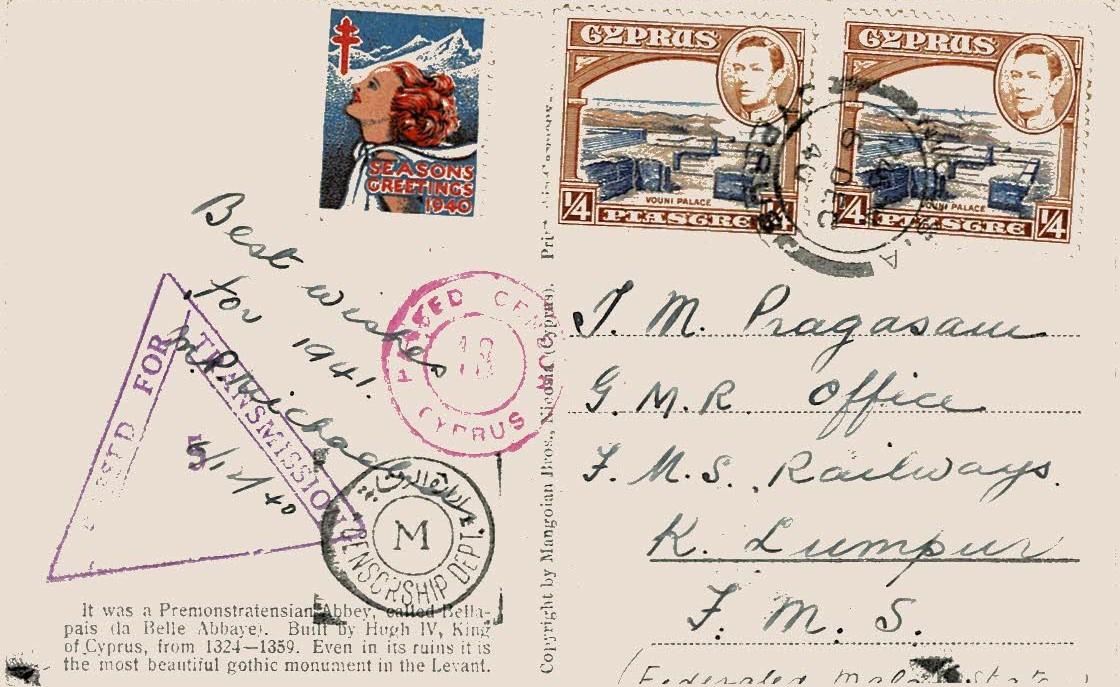 SEASONS
GREETINGS
1940
CYPRUS
VOUNI PALACE
1/4 PIASGRE 1/4
CYPRUS
VOUNI PALACE
1/4 PIASGRE 1/4
CYPRUS
6 DEC
40
Best wishes
for 1941!
M.P.
6/12/40
FOR
TRANSMISSION
PASSED
CYPRUS
M
CENSORSHIP DEPT.
It was a Premonstratensian Abbey, called Bella-
pais (la Belle Abbaye). Built by Hugh IV, King
of Cyprus, from 1324—1359. Even in its ruins it is
the most beautiful gothic monument in the Levant.
Copyright by Mangoian Bros., Nicosia (Cyprus).
T. M. Pragasam
G. M. R. Office
F. M. S. Railways.
K. Lumpur
F. M. S.
(Federated Malay States)